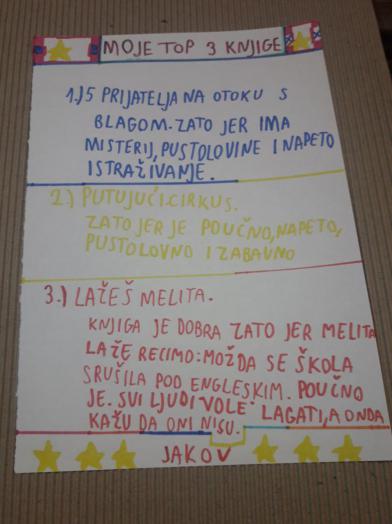 MOJE TOP 3 KNJIGE
1.) 5 PRIJATELJA NA OTOKU S
BLAGOM. ZATO JER IMA
MISTERIJ, PUSTOLOVINE I NAPETO
ISTRAŽIVANJE.
2.) PUTUJUĆI CIRKUS.
ZATO JER JE POUČNO, NAPETO,
PUSTOLOVNO I ZABAVNO
3.) LAŽEŠ MELITA.
KNJIGA JE DOBRA ZATO JER MELITA
LAŽE RECIMO: MOŽDA SE ŠKOLA
SRUŠILA POD ENGLESKIM. POUČNO
JE. SVI LJUDI VOLE LAGATI, A ONDA
KAŽU DA ONI NISU.
JAKOV